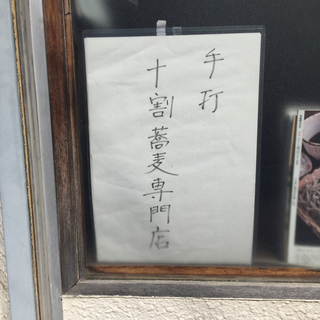 手打
十割蕎麦専門店